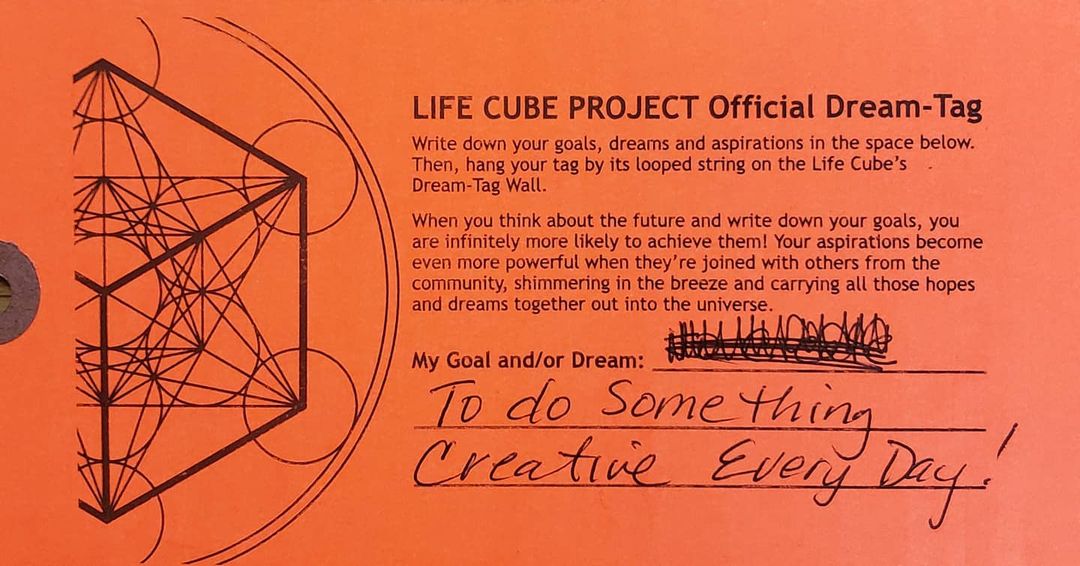 LIFE CUBE PROJECT Official Dream-Tag
Write down your goals, dreams and aspirations in the space below.
Then, hang your tag by its looped string on the Life Cube's
Dream-Tag Wall.
When you think about the future and write down your goals, you
are infinitely more likely to achieve them! Your aspirations become
even more powerful when they're joined with others from the
community, shimmering in the breeze and carrying all those hopes
and dreams together out into the universe.
My Goal and/or Dream:
To do Something
Creative Every Day!